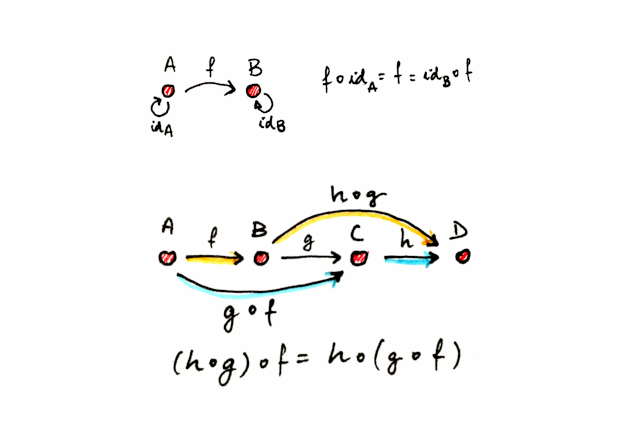 A f B
f∘id_A = f = id_B∘f
id_A id_B
h∘g
A f B g C h D
g∘f
(h∘g)∘f = h∘(g∘f)